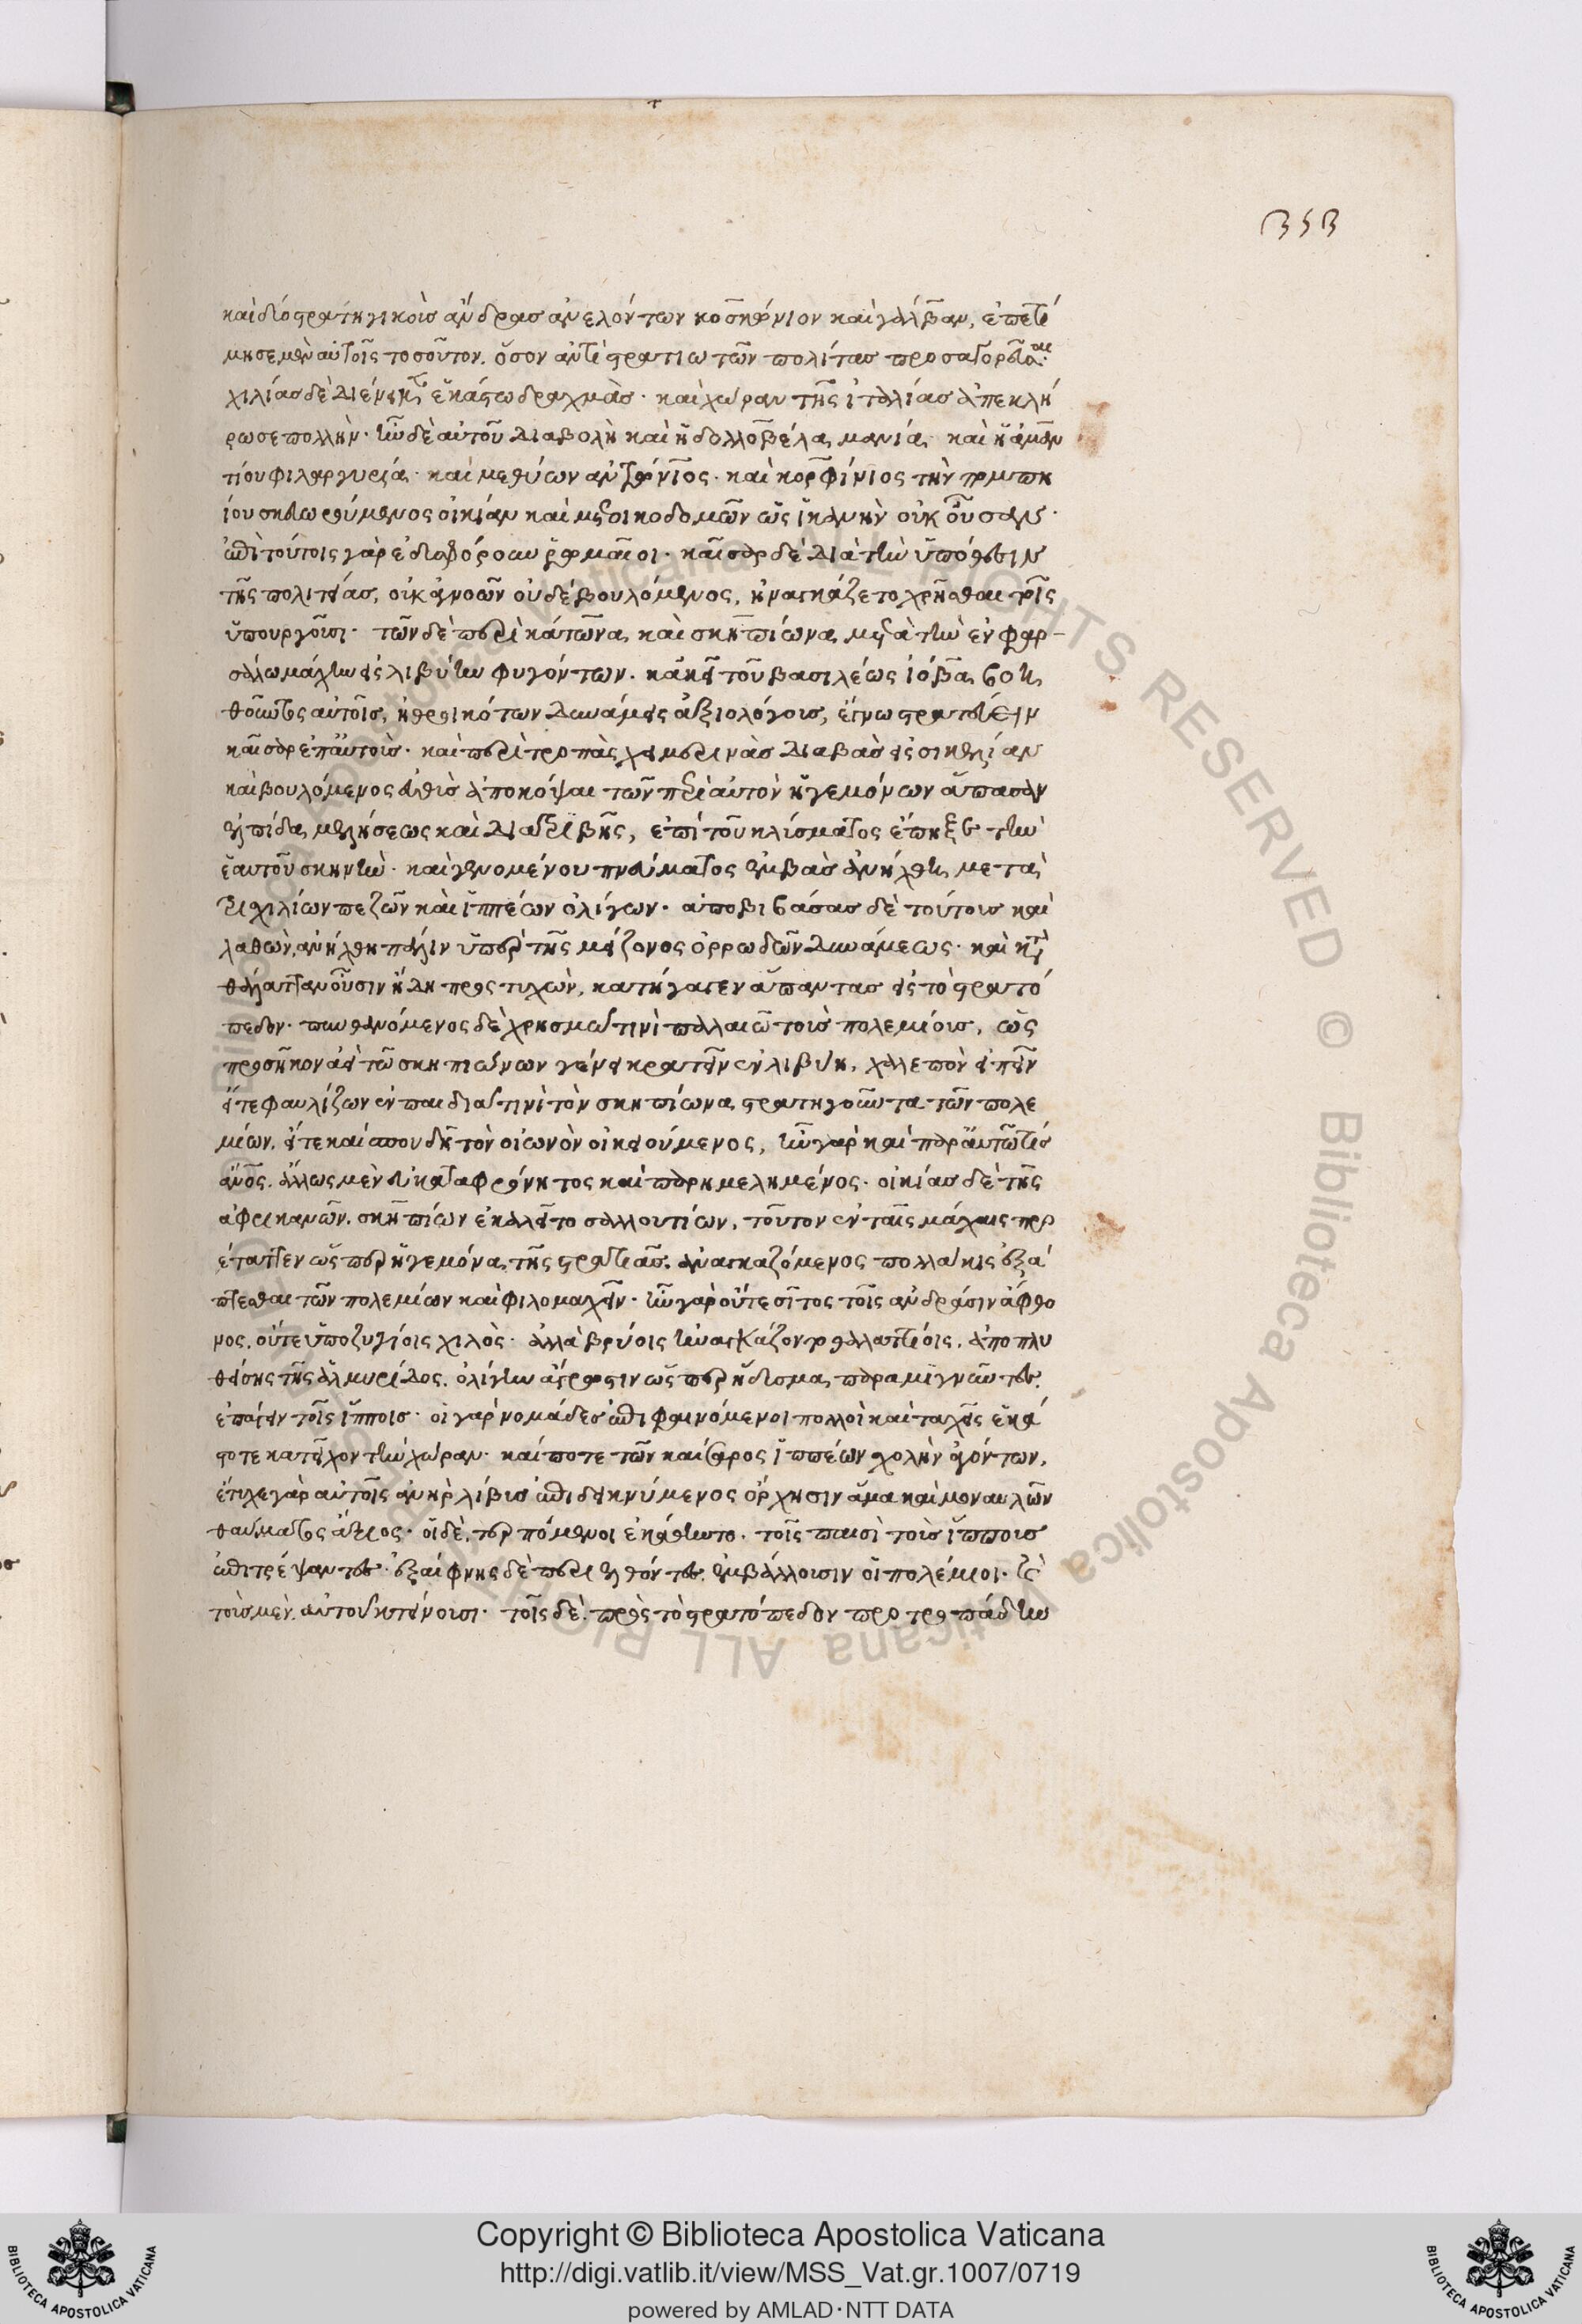 352
καὶ δύο στρατηγικοὺς ἄνδρας ἀνελόντων κοσκώνιον καὶ γάλβαν, ἐπετί
μησε μὲν αὐτοῖς τοσοῦτον, ὅσον ἀντὶ στρατιωτῶν πολίτας προσαγορεῦσαι·
χιλίας δὲ διένειμεν ἑκάστω δραχμὰς· καὶ χώραν τῆς ἰταλίας ἀπεκλή
ρωσε πολλήν· ἦν δὲ αὐτοῦ διαβολὴ καὶ ἡ δολλοβέλα μανία καὶ ἡ ἀμαν
τίου φιλαργυρία· καὶ μεθύων ἀντώνιος· καὶ κορφίνιος τὴν πομπη
ίου σκευωρούμενος οἰκίαν καὶ μετοικοδομῶν ὡς ἱκανὴν οὐκ οὖσαν·
ἐπὶ τούτοις γὰρ ἐδυσφόρουν ῥωμαῖοι· καῖσαρ δὲ διὰ τὴν ὑπόθεσιν
τῆς πολιτείας, οὐκ ἀγνοῶν οὐδὲ βουλόμενος, ἠναγκάζετο χρῆσθαι τοῖς
ὑπουργοῦσι· τῶν δὲ περὶ κάτωνα καὶ σκηπίωνα μετὰ τὴν ἐν φαρ-
σάλω μάχην εἰς λιβύην φυγόντων· κἀκεῖ τοῦ βασιλέως ἰόβα βοη
θοῦντος αὐτοῖς, ἠθροικότων δυνάμεις ἀξιολόγους, ἔγνω στρατεύειν
καῖσαρ ἐπ' αὐτοὺς· καὶ περὶ τροπὰς χειμερινὰς διαβὰς εἰς σικελίαν
καὶ βουλόμενος εὐθὺς ἀποκόψαι τῶν περὶ αὐτὸν ἡγεμόνων ἅπασαν
ἐλπίδα μελήσεως καὶ διατριβῆς, ἐπὶ τοῦ κλύσματος ἔπηξε τὴν
ἑαυτοῦ σκηνὴν· καὶ γενομένου πνεύματος ἐμβὰς ἀνήχθη μετὰ
τρισχιλίων πεζῶν καὶ ἱππέων ὀλίγων· ἀποβιβάσας δὲ τούτους καὶ
λαθὼν, ἀνήχθη πάλιν ὑπὲρ τῆς μείζονος ὀρρωδῶν δυνάμεως· καὶ κατὰ
θάλατταν οὖσιν ἤδη προστυχὼν, κατήγαγεν ἅπαντας εἰς τὸ στρατό
πεδον· πυνθανόμενος δὲ χρησμῶ τινὶ παλαιῶ τοὺς πολεμίους, ὡς
προσῆκον ἀεὶ τῶ σκηπιώνων γένει κρατεῖν ἐν λιβύη, χαλεπὸν εἰπεῖν
εἴτε φαυλίζων ἐν παιδιᾶ τινὶ τὸν σκηπίωνα στρατηγοῦντα τῶν πολε
μίων, εἴτε καὶ σπουδῆ τὸν οἰωνὸν οἰκειούμενος, ἦν γὰρ καὶ παρ' αὐτῶ τις
ἄνος, ἄλλως μὲν εὐκαταφρόνητος καὶ παρημελημένος· οἰκίας δὲ τῆς
ἀφρικανῶν, σκηπίων ἐκαλεῖτο σαλλουτίων, τοῦτον ἐν ταῖς μάχαις προ
έταττεν ὥσπερ ἡγεμόνα τῆς στρατιᾶς, ἀναγκαζόμενος πολλάκις ἐξά
πτεσθαι τῶν πολεμίων καὶ φιλομαχεῖν· ἦν γὰρ οὔτε σῖτος τοῖς ἀνδράσιν ἄφθο
νος, οὔτε ὑποζυγίοις χιλὸς· ἀλλὰ βρύοις ἠναγκάζοντο θαλαττίοις, ἀποπλυ
θείσης τῆς ἁλμυρίδος, ὀλίγην ἄγρωστιν ὥσπερ ἥδυσμα παραμιγνῦντες
ἐπάγειν τοῖς ἵπποις· οἱ γὰρ νομάδες ἐπιφαινόμενοι πολλοὶ καὶ ταχεῖς ἑκά
στοτε κατεῖχον τὴν χώραν· καί ποτε τῶν καίσαρος ἱππέων σχολὴν ἀγόντων,
ἔτυχε γὰρ αὐτοῖς ἀνὴρ λίβυς ἐπιδεικνύμενος ὄρχησιν ἅμα καὶ μοναυλῶν
θαύματος ἄξιος· οἱ δὲ, τερπόμενοι ἐκάθηντο· τοῖς παισὶ τοὺς ἵππους
ἐπιτρέψαντες· ἐξαίφνης δὲ περιελθόντες ἐμβάλλουσιν οἱ πολέμιοι· καὶ
τοὺς μὲν, αὐτοῦ κτείνουσι· τοῖς δὲ, πρὸς τὸ στρατόπεδον προτροπάδην
Copyright © Biblioteca Apostolica Vaticana
http://digi.vatlib.it/view/MSS_Vat.gr.1007/0719
powered by AMLAD·NTT DATA